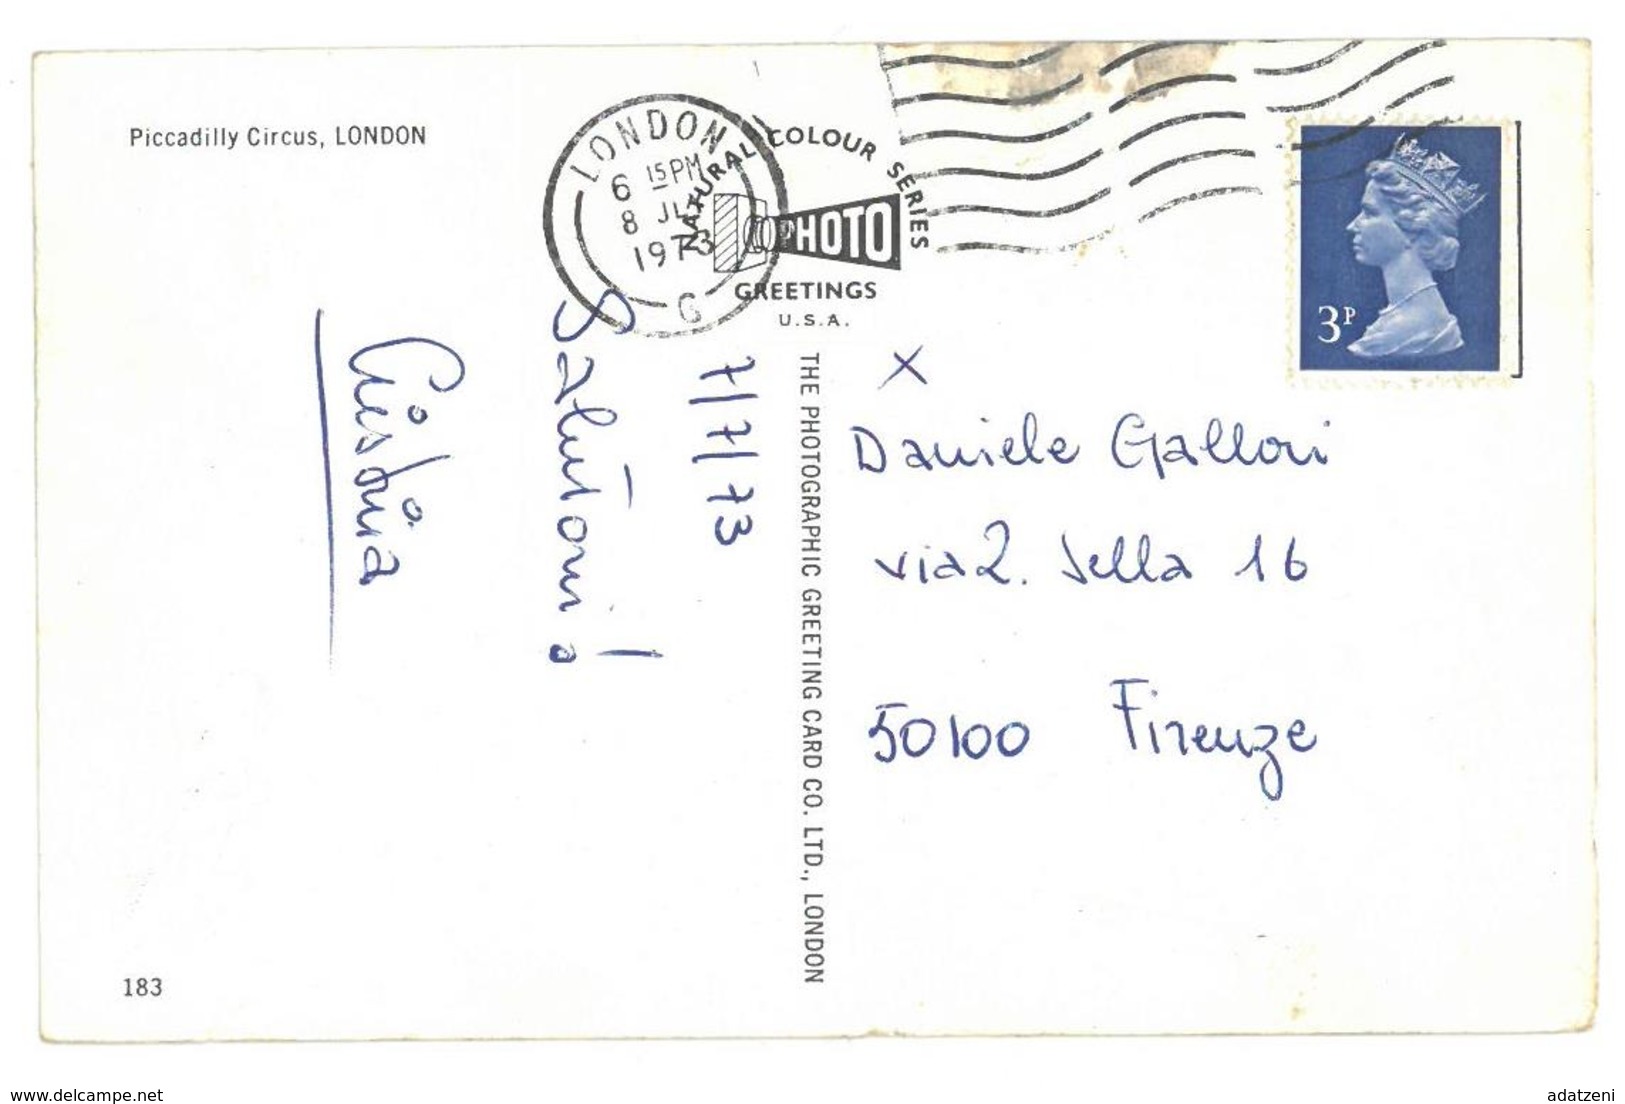 Piccadilly Circus, LONDON
LONDON
6 15PM
8 JL
1973
G
NATURAL COLOUR SERIES
PHOTO
GREETINGS
U.S.A.
3P
7/7/73
Salutoni!
THE PHOTOGRAPHIC GREETING CARD CO. LTD., LONDON
X
Daniele Galloni
via Q. Sella 16
50100 Firenze
183
https://www.delcampe.net
adatzeni